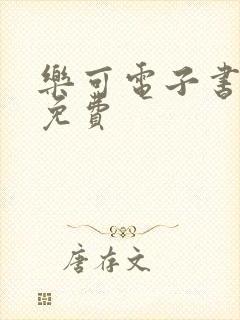 樂可電子書
免費
唐存文